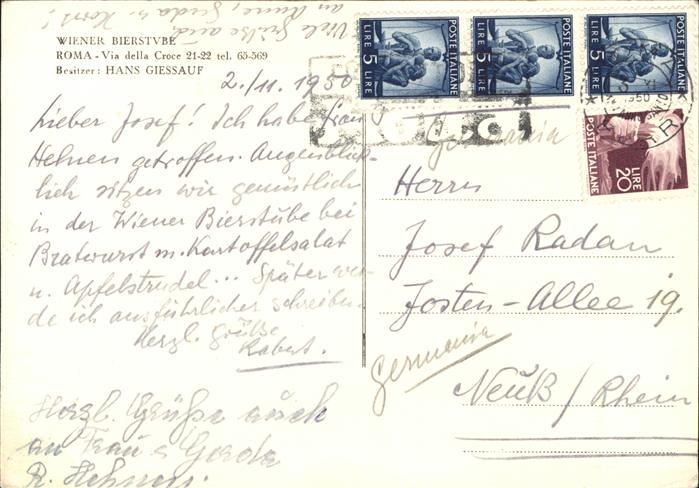 Viele Grüße auch
an Anne, Gerda u. Horst!
WIENER BIERSTVBE
ROMA - Via della Croce 21-22 tel. 65-569
Besitzer: HANS GIESSAUF
2./11. 1950
Lieber Josef! Ich habe Frau
Hehnen getroffen. Augenblick-
lich sitzen wir gemütlich
in der Wiener Bierstube bei
Bratwurst m. Kartoffelsalat
u. Apfelstrudel... Später wer-
de ich ausführlicher schreiben.
Herzl. Grüße
Robert.
Herzl. Grüße auch
an Frau u Gerda
R. Hehnen.
POSTE ITALIANE
LIRE 5 LIRE
POSTE ITALIANE
LIRE 5 LIRE
POSTE ITALIANE
5 LIRE
1950
POSTE ITALIANE
LIRE
20
Germania
Herrn
Josef Radau
Josten-Allee 19.
Germania
Neuß/Rhein